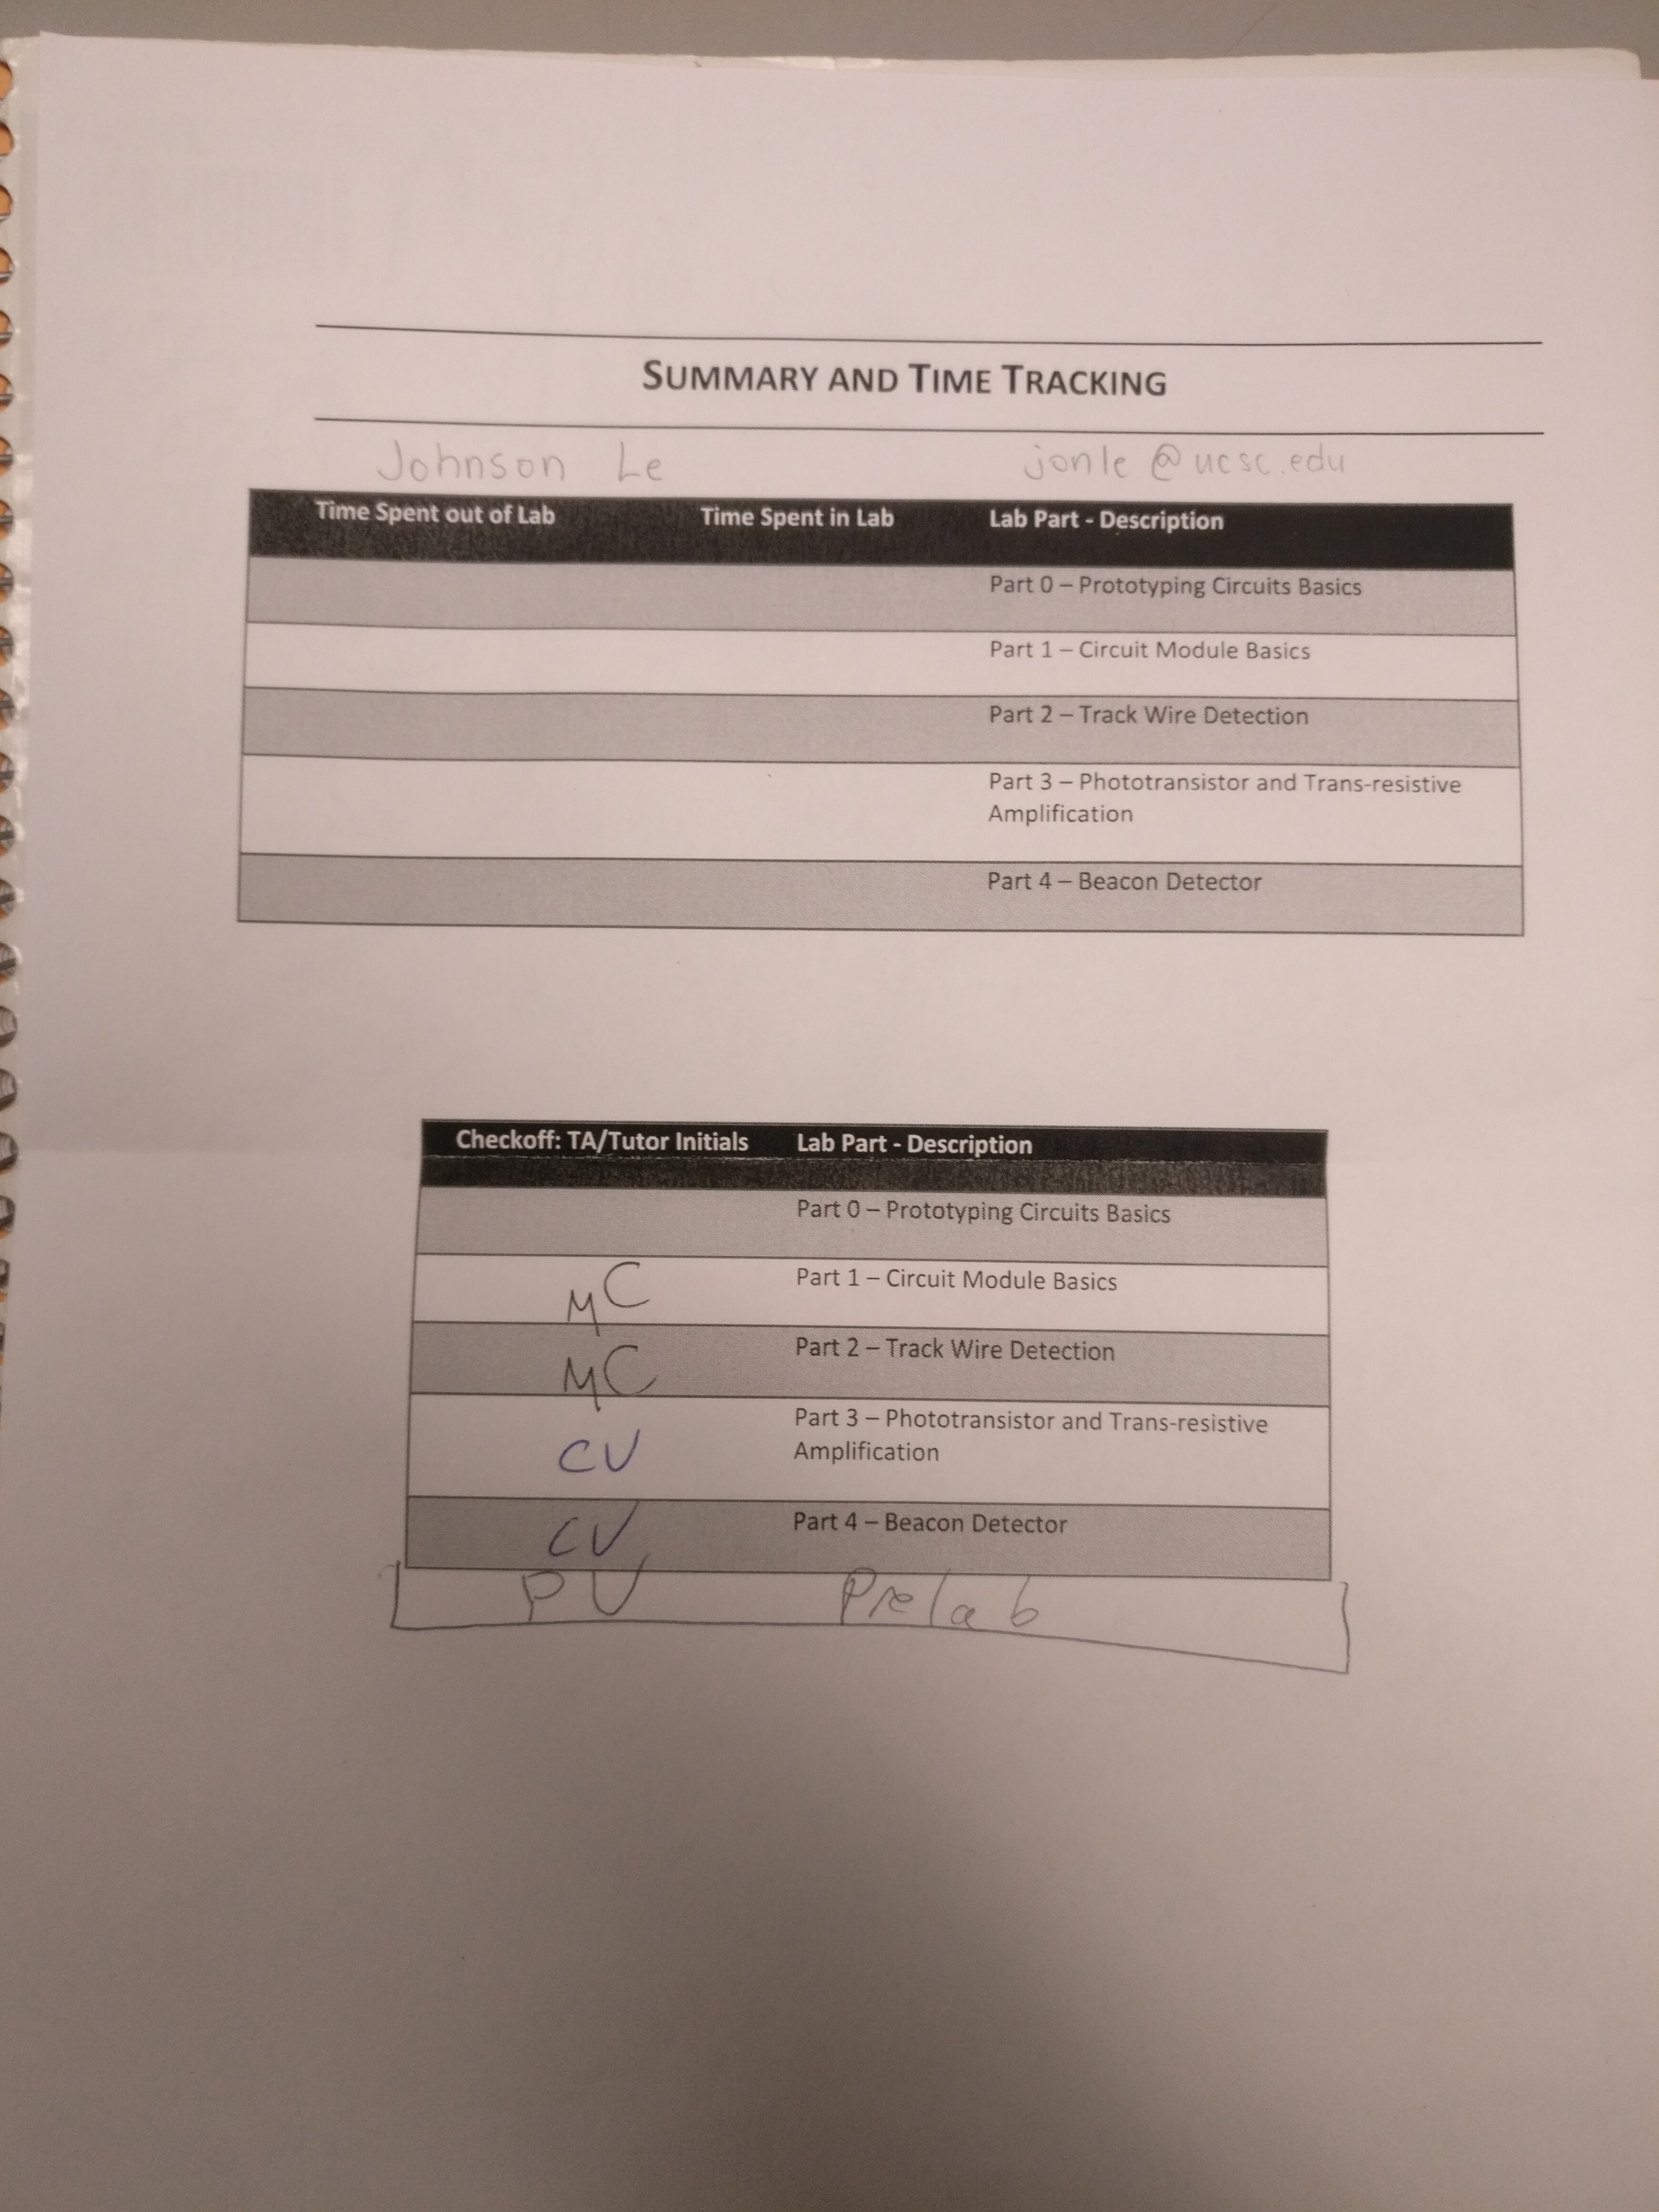 SUMMARY AND TIME TRACKING
Johnson Le jonle@ucsc.edu
Time Spent out of Lab Time Spent in Lab Lab Part - Description
Part 0 – Prototyping Circuits Basics
Part 1 – Circuit Module Basics
Part 2 – Track Wire Detection
Part 3 – Phototransistor and Trans-resistive
Amplification
Part 4 – Beacon Detector
Checkoff: TA/Tutor Initials Lab Part - Description
Part 0 – Prototyping Circuits Basics
MC Part 1 – Circuit Module Basics
MC Part 2 – Track Wire Detection
CV Part 3 – Phototransistor and Trans-resistive
Amplification
CV Part 4 – Beacon Detector
PV Prelab